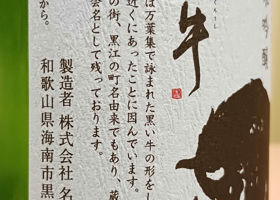 吟醸
牛
は万葉集で詠まれた黒い牛の形をし
近くにあったことに因んでいます。
の街、黒江の町名由来でもあり、蔵
会名として残っております。
製造者 株式会社 名
和歌山県海南市黒
から。